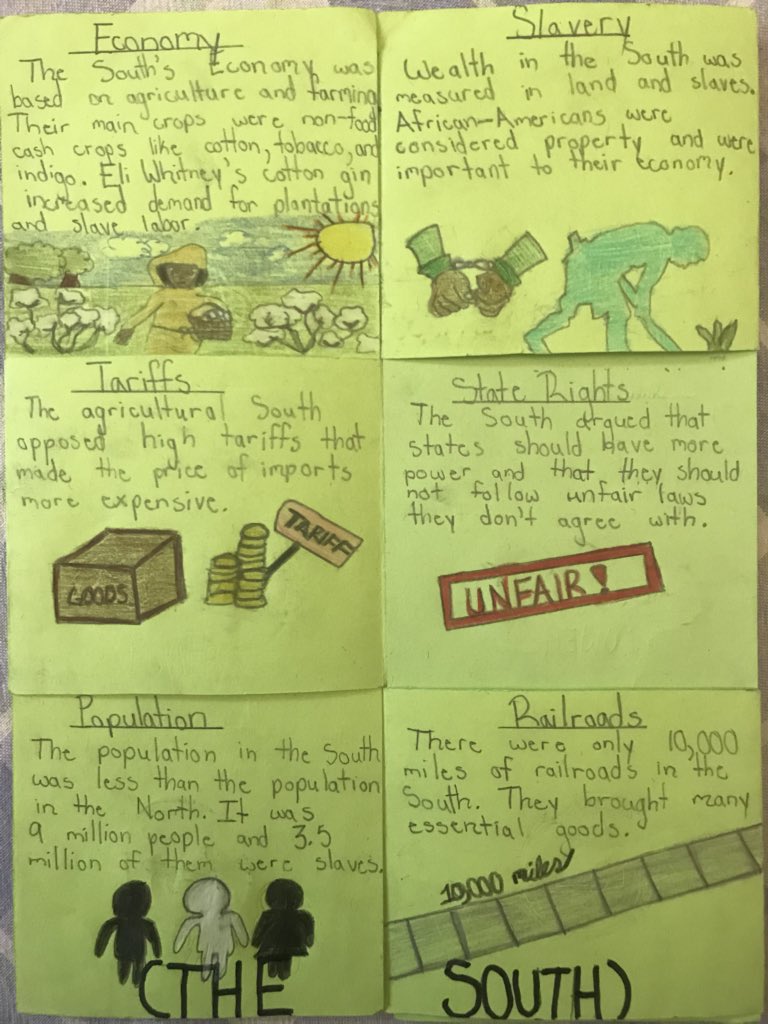 Economy
The South's Economy was
based on agriculture and farming
Their main crops were non-food
cash crops like cotton, tobacco, and
indigo. Eli Whitney's cotton gin
increased demand for plantations
and slave labor.
Slavery
Wealth in the South was
measured in land and slaves.
African-Americans were
considered property and were
important to their economy.
Tariffs
The agricultural South
opposed high tariffs that
made the price of imports
more expensive.
GOODS
TARIFF
State Rights
The South argued that
states should have more
power and that they should
not follow unfair laws
they don't agree with.
UNFAIR!
Population
The population in the South
was less than the population
in the North. It was
9 million people and 3.5
million of them were slaves.
Railroads
There were only 10,000
miles of railroads in the
South. They brought many
essential goods.
10,000 miles
(THE SOUTH)